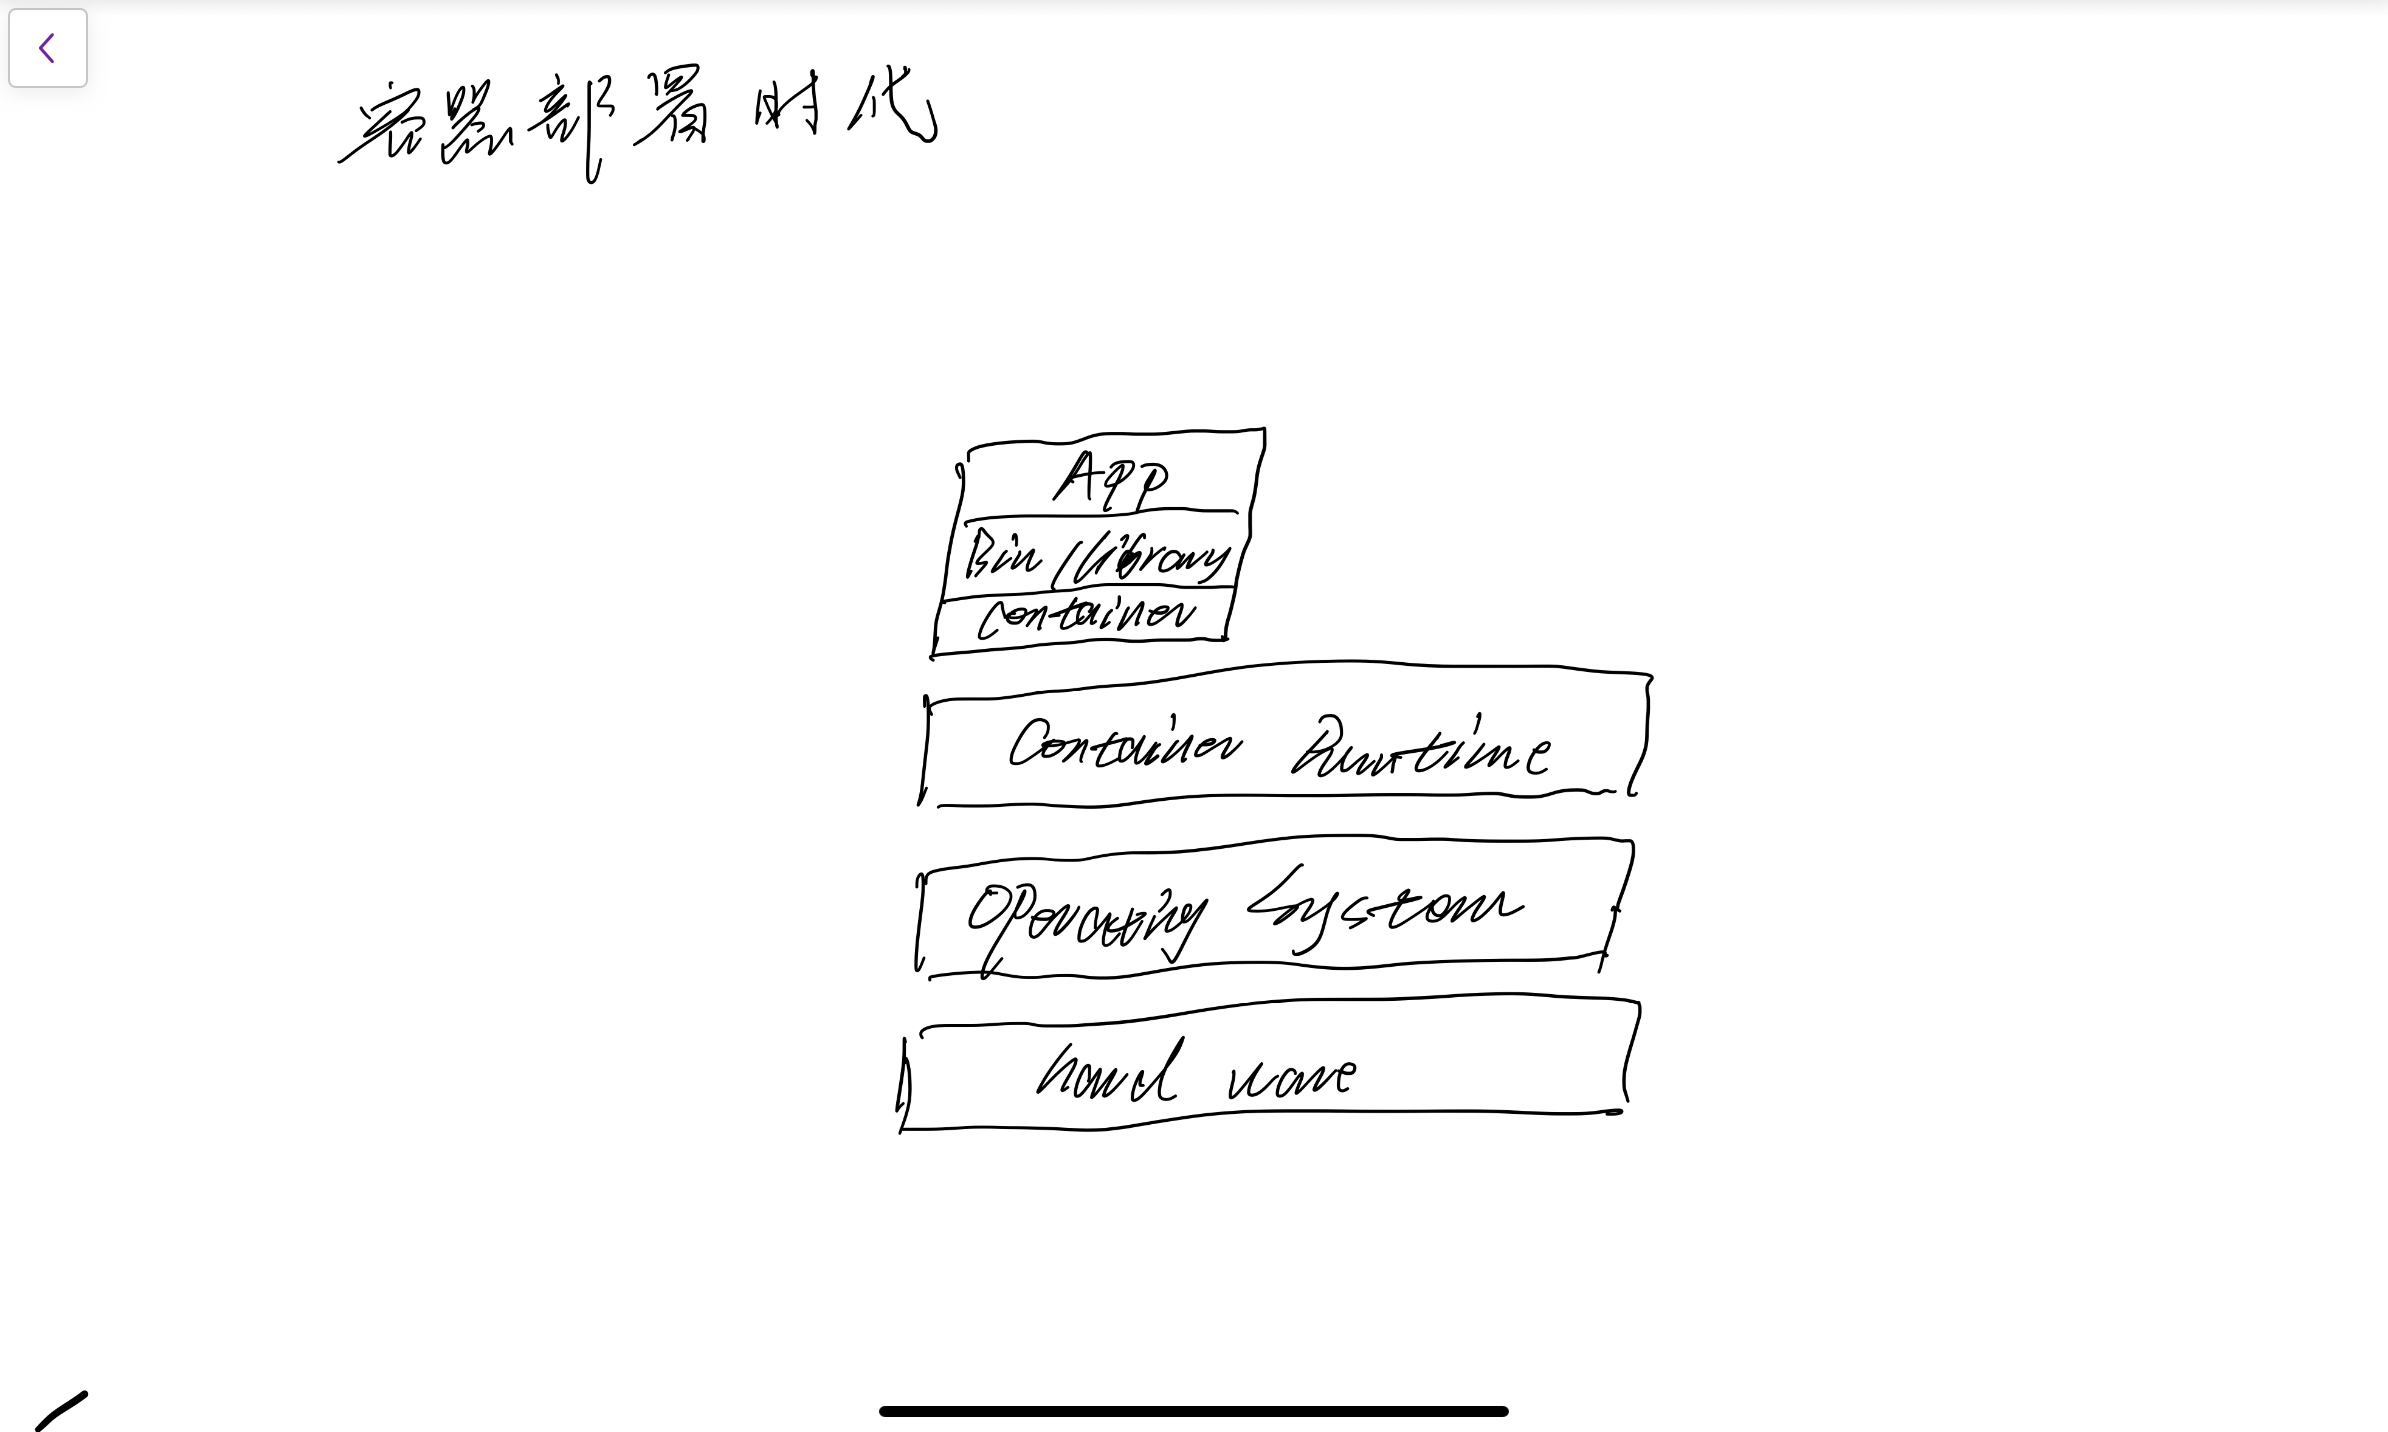 容器部署时代
App
Bin / library
Container
Container Runtime
Operating System
hard ware